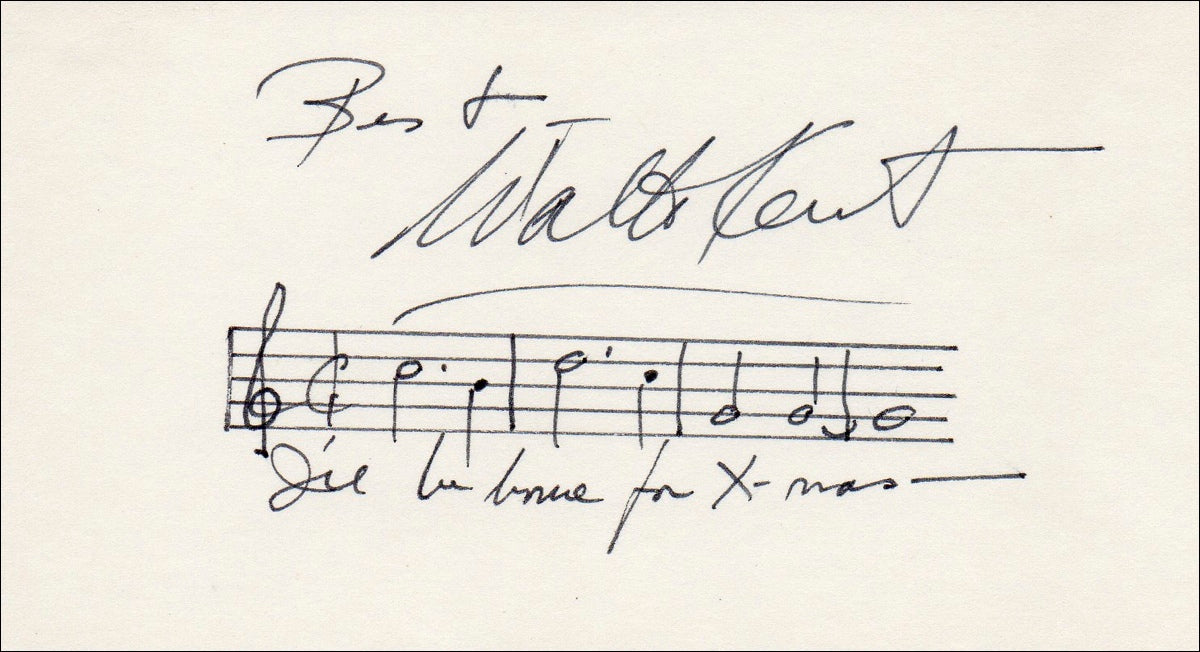 Best
Walter Kent
I'll be home for X-mas